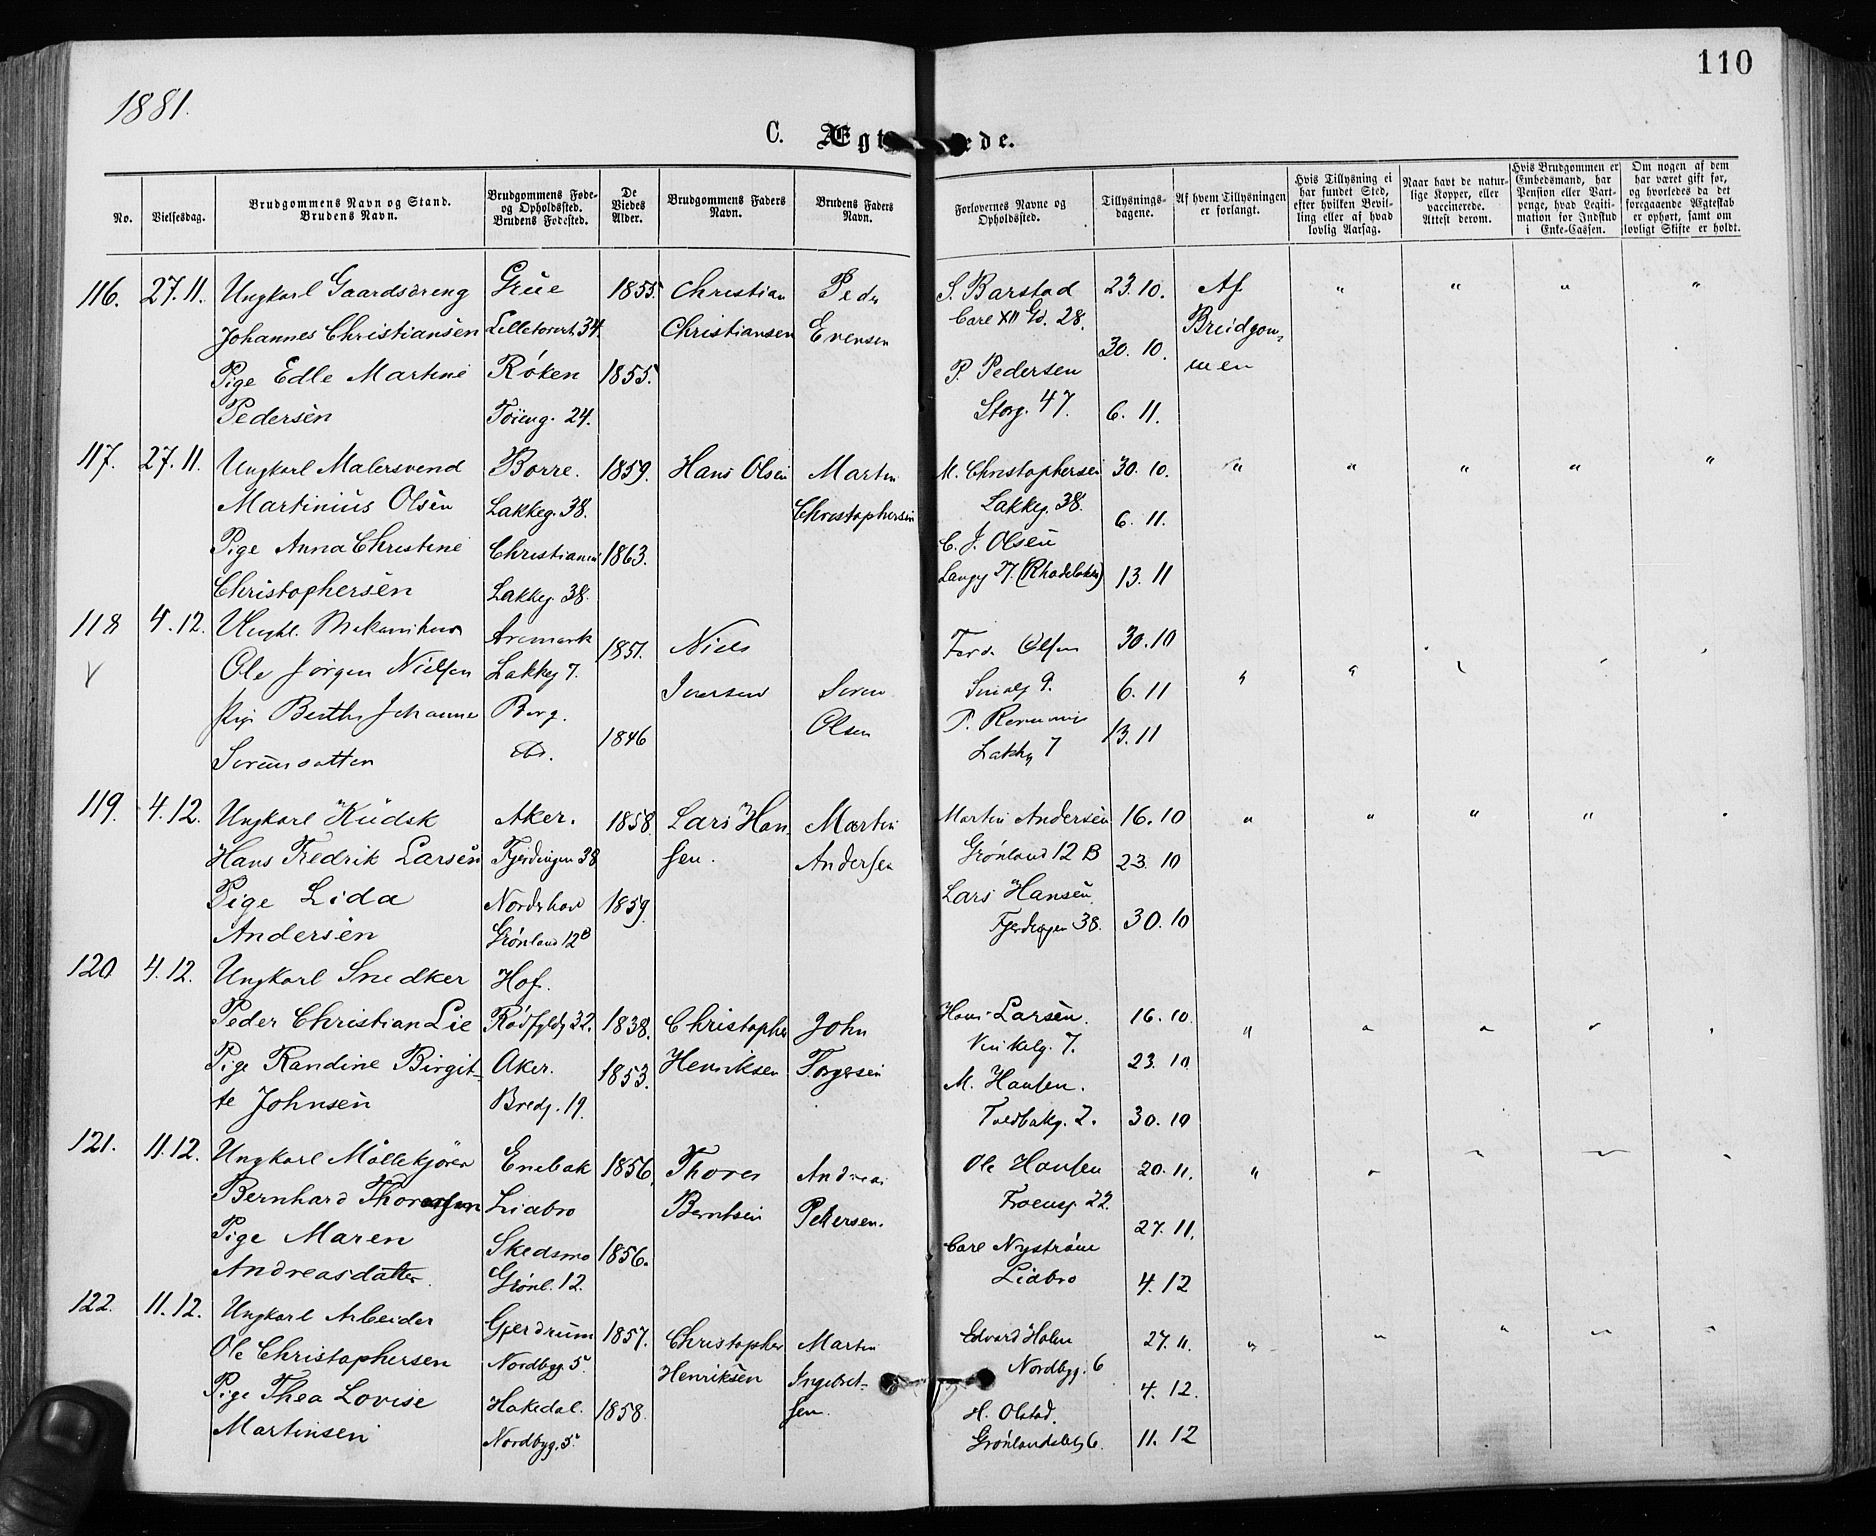 110
1881.
C. Ægt ede.
No.
Vielsesdag.
Brudgommens Navn og Stand.
Brudens Navn.
Brudgommens Føde-
og Opholdssted.
Brudens Fødested.
De
Viedes
Alder.
Brudgommens Faders
Navn.
Brudens Faders
Navn.
Forlovernes Navne og
Opholdssted.
Tillysnings-
dagene.
Af hvem Tillysningen
er forlangt.
Hvis Tillysning ei
har fundet Sted,
efter hvilken Bevil-
ling eller af hvad
lovlig Aarsag.
Naar havt de natur-
lige Kopper, eller
vaccinerede.
Attest derom.
Hvis Brudgommen er
Embedsmand, har
Pension eller Vart-
penge, hvad Legiti-
mation for Indskud
i Enke-Cassen.
Om nogen af dem
har været gift før,
og hvorledes da det
foregaaende Ægteskab
er ophørt, samt om
lovligt Skifte er holdt.
116. 27. 11. Ungkarl Gaardsdreng Grue 1855. Christian Peder S. Barstad 23. 10. Af " " " "
Johannes Christiansen Lilletorvet 34. Christiansen Evensen Carl XII Gd. 28. Brudgom-
Pige Edle Martine Røken 1855. P. Pedersen 30. 10. men
Pedersen Tøieng. 24. Storg. 47. 6. 11.
117. 27. 11. Ungkarl Malersvend Borre. 1859. Hans Olsen Martin M. Christophersen 30. 10. " " " " "
Martinius Olsen Lakkeg. 38. Christophersen Lakkeg. 38. 6. 11.
Pige Anna Christine Christiania 1863. C. J. Olsen
Christophersen Lakkeg. 38. Langg 27. 13. 11
118 4. 12. Ungkl. Mekanikus Aremark 1851. Niels Ferd. Olsen 30. 10
Ole Jørgen Nielsen Lakkeg 7. Iversen Søren 9. 6. 11 "
Pige Berthe Johanne Berg. 1846 Olsen P. 13. 11
Sørensdatter do. Lakkeg 7
119. 4. 12. Ungkarl Kudsk Aker. 1858. Lars Han- Martin Martin Andersen 16. 10 " " " "
Hans Fredrik Larsen Fjerdingen 38 sen. Andersen Grønland 12 B 23. 10
Pige Lida Norderhov 1859. Lars Hansen
Andersen Grønland 12B Fjerdingen 38. 30. 10
120 4. 12. Ungkarl Snedker Hof.
Peder Christian Lie Rødfyldg 32. 1838. Christopher John Hans Larsen. 16. 10. "
Pige Randine Birgit- Aker. 1853. Henriksen Torgersen Vinkelg. 7. 23. 10
te Johnsen Bredg. 19. M. Hansen.
Toldbokg. 2. 30. 10
121. 11. 12. Ungkarl Møllekjører Enebak 1856. Thores Andreas Ole Hansen 20. 11. "
Bernhard Thoresen Liabro Berntsen Pettersen. 22. 27. 11.
Pige Maren Skedsmo 1856. Carl Nystrøm
Andreasdatter. Grønl. 12. Liabro 4. 12
122. 11. 12. Ungkarl Arbeider Gjerdrum 1857. Christopher Martin Edvard Holm 27. 11. "
Ole Christophersen Nordbyg. 5 Henriksen Ingebret- Nordbyg. 6 4. 12.
Pige Thea Lovise Hakedal. 1858. sen. H. Olstad.
Martinsen Nordbyg. 5. 6. 11. 12